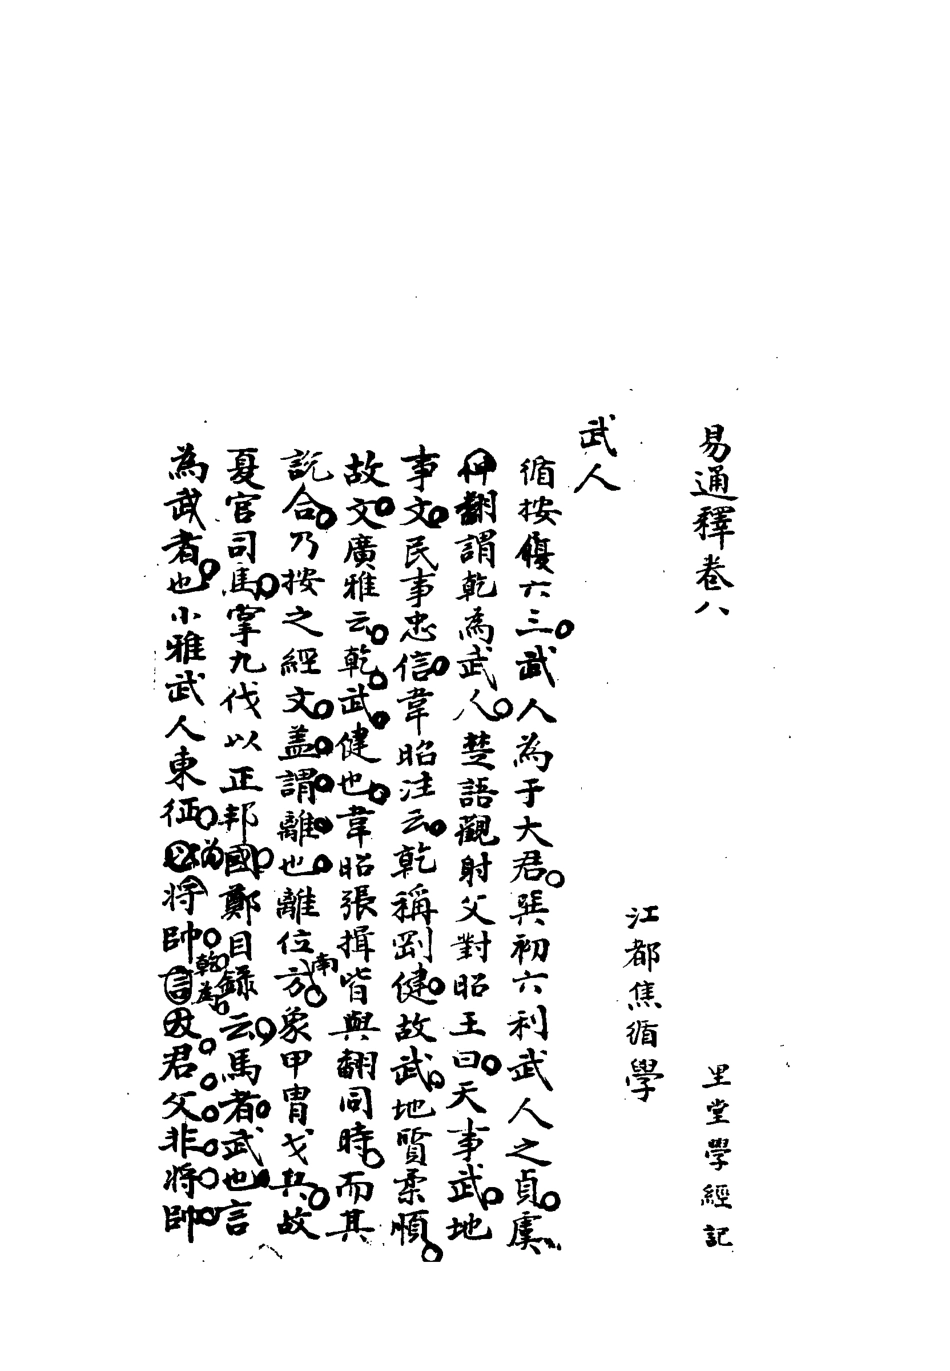 易通釋卷八
里堂學經記
江都焦循學
武人
循按履六三武人為于大君巽初六利武人之貞虞
仲翻謂乾為武人楚語觀射父對昭王曰天事武地
事文民事忠信韋昭注云乾稱剛健故武地質柔順
故文廣雅云乾武健也韋昭張揖皆與翻同時而其
說合乃按之經文蓋謂離也離位南方象甲冑戈兵故
夏官司馬掌九伐以正邦國鄭目録云馬者武也言
為武者也小雅武人東征為將帥乾為君父非將帥